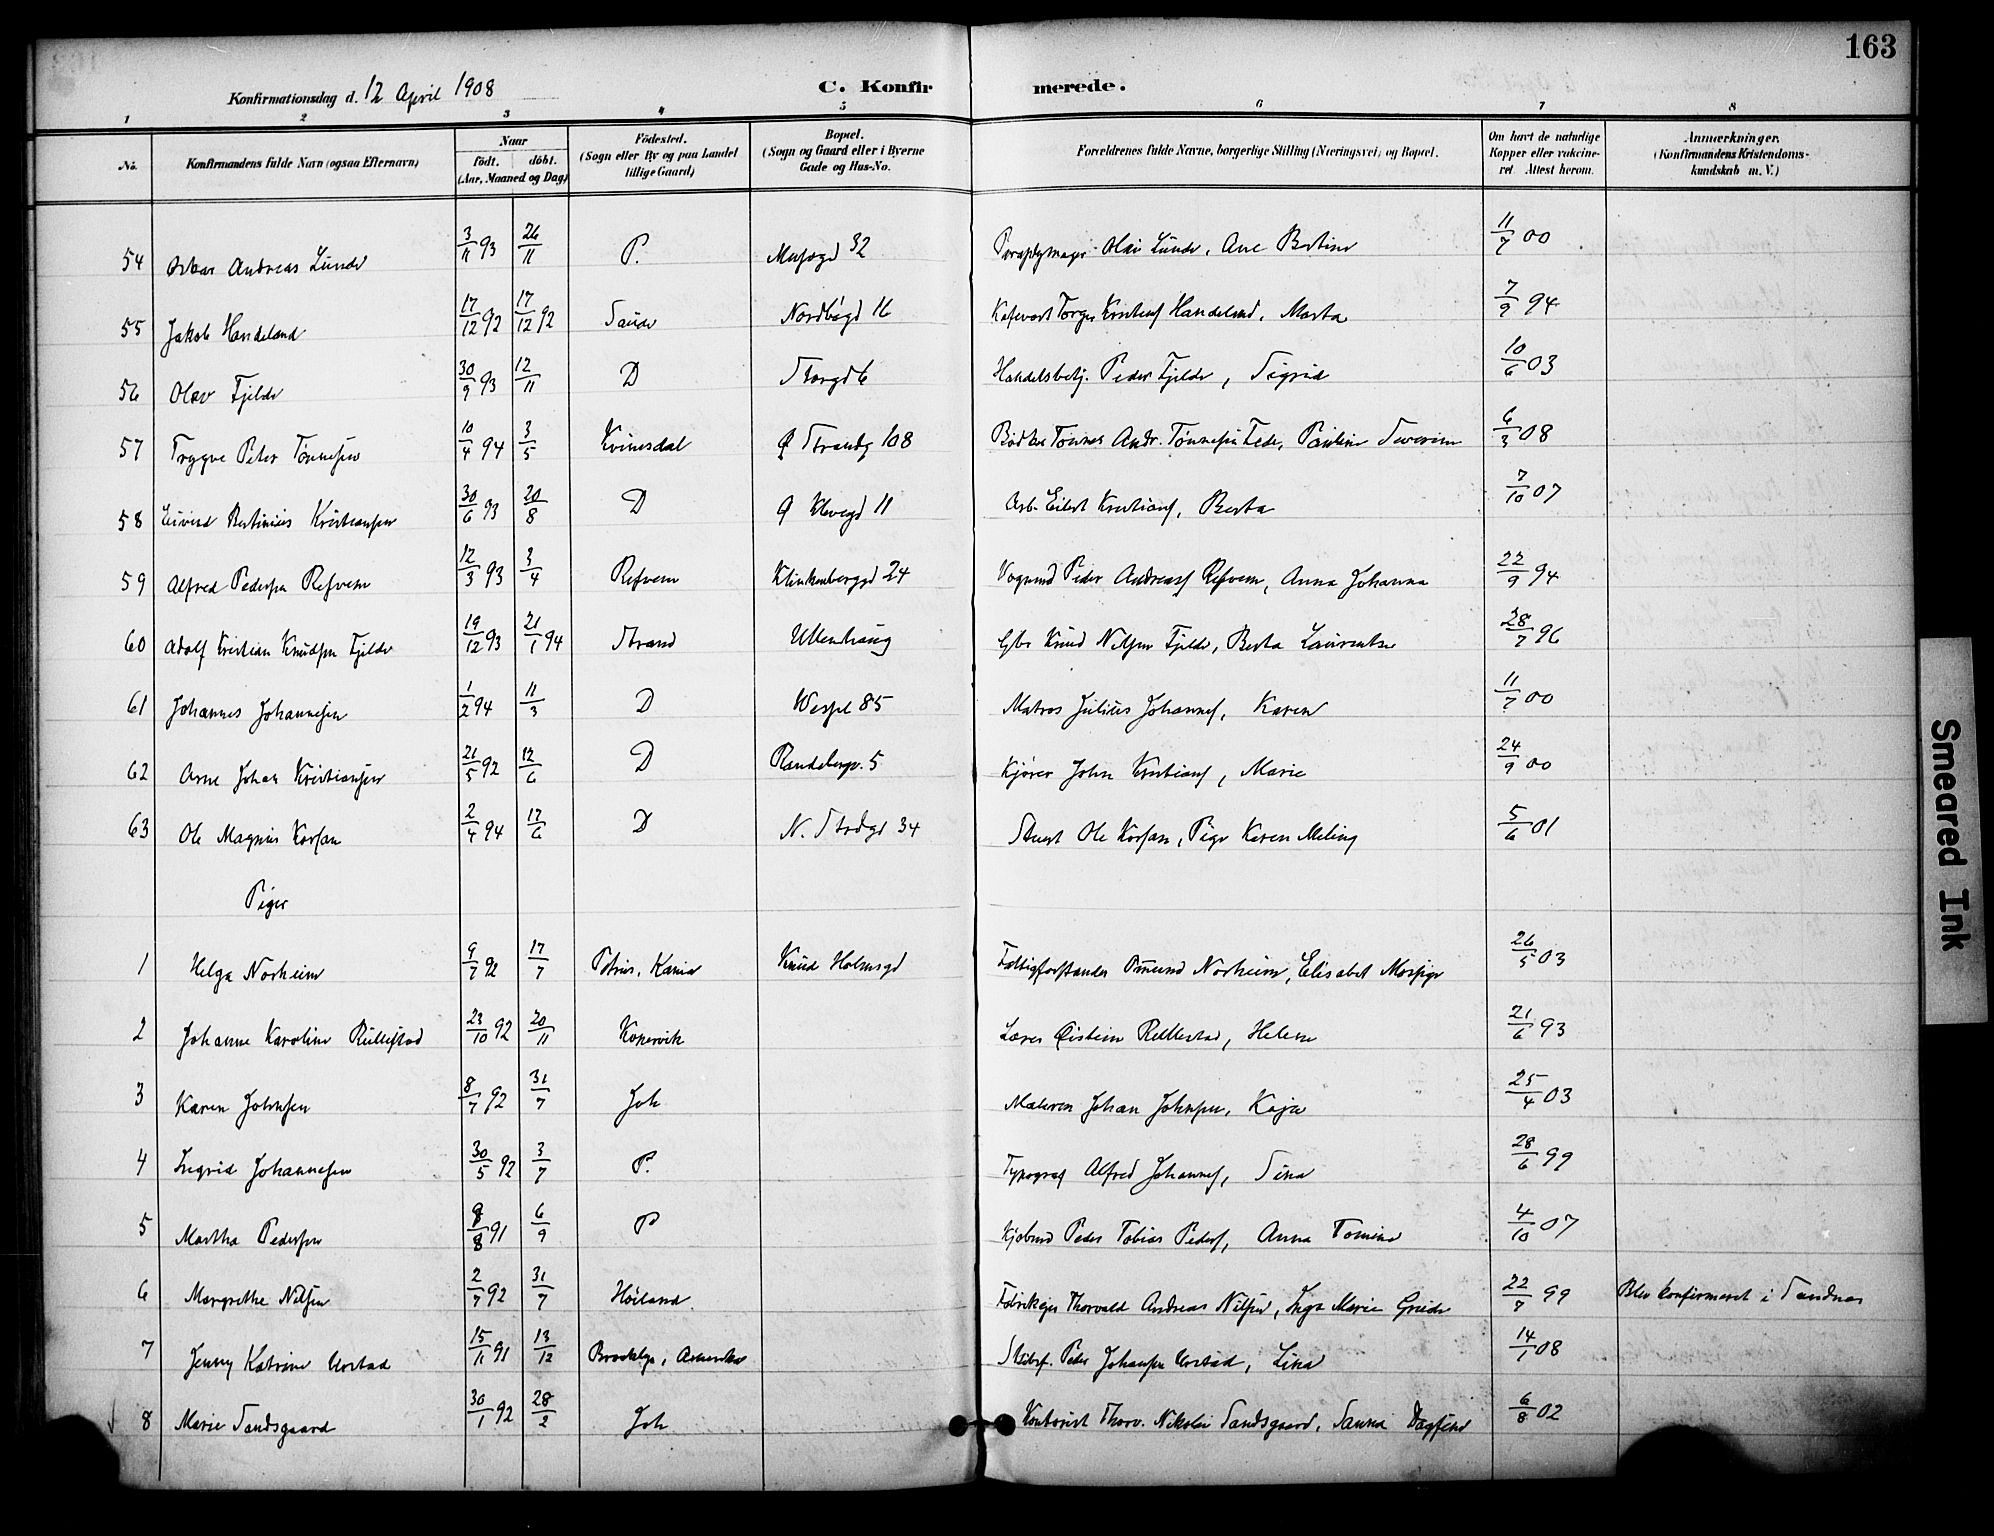 163
Konfirmationsdag d. 12 April 1908
C. Konfirmerede.
1 2 3 4 5 6 7 8
No. Konfirmandens fulde Navn (ogsaa Efternavn) Naar født. døbt. (Aar, Maaned og Dag) Fødested. (Sogn eller By og paa Landet tillige Gaard) Bopæl. (Sogn og Gaard eller i Byerne Gade og Hus-No. Forældrenes fulde Navne, borgerlige Stilling (Næringsvei) og Bopæl. Om havt de naturlige Kopper eller vakcineret Attest herom. Anmærkninger. (Konfirmandens Kristendomskundskab m. V.)
54 Andreas Lunde 3/11 93 26/11 P. 32 Olai Lunde, Ane Bertine 11/7 00
55 Jakob Handeland 17/12 92 17/12 92 Saude Nordbøgd 16 Torger Handeland, Marta 7/9 94
56 Olav Fjelde 30/9 93 12/11 D Storgd 6 Handelsbetj. Peder Fjelde, Sigrid 10/6 03
57 Trygve Peter Tønnesen 10/4 94 3/5 Kvinesdal Ø Strandg 108 Bødker Tønnes Andr. Tønnesen Fede, Pauline Severine 6/3 08
58 Eivind Bertinius Kristiansen 30/6 93 20/8 D Ø Klevegd 11 Arb. Eilert Kristians, Berta 7/10 07
59 Alfred Pedersen Refvem 12/3 93 3/4 Refvem Klinkenberggd 24 Vognmd Peder Andreass Refvem, Anna Johanna 22/9 94
60 Adolf Kristian Knudsen Fjelde 19/12 93 21/1 94 Strand Ullenhaug Gbr Knud Nilsen Fjelde, Berta Laurentse 28/7 96
61 Johannes Johannesen 1/2 94 11/3 D Wespl 85 Matros Julius Johannes, Karen 11/7 00
62 Arne Johan Kristiansen 21/5 92 12/6 D Randabergv. 5 Kjører John Kristians, Marie 24/9 00
63 Ole Magnus Korsan 2/4 94 17/6 D N. Strdgd 34 Stuert Ole Korsan, Pige Karen Meling 5/6 01
Piger
1 Helga Norheim 9/7 92 17/7 Petrus, Kania Knud Holmsgd Fattigforstander Omund Norheim, Elisabet Marsige 26/5 03
2 Johanne Karoline Rullestad 23/10 92 20/11 Kopervik Lærer Øistein Rullestad, Helene 21/6 93
3 Karen Johnsen 8/7 92 31/7 Joh Johan Johnsen, Kaja 25/4 03
4 Ingrid Johannesen 30/5 92 3/7 P. Typograf Alfred Johannes, Sina 28/6 99
5 Martha Pedersen 8/8 91 6/9 P Kjøbmd Peder Tobias Peders, Anna Tomine 4/10 07
6 Margrethe Nilsen 2/7 92 31/7 Høiland Fabrikejer Thorvald Andreas Nilsen, Inga Marie Grude 22/7 99 Blev konfirmeret i Sandnes
7 Jenny Katrine Norstad 15/11 91 13/12 Brooklyn, Amerika Peder Johansen Norstad, Lina 14/1 08
8 Marie Sandsgaard 30/1 92 28/2 Joh Kontorist Thorv. Nikolai Sandsgaard, Sanna Dagfind 6/8 02
Smeared Ink